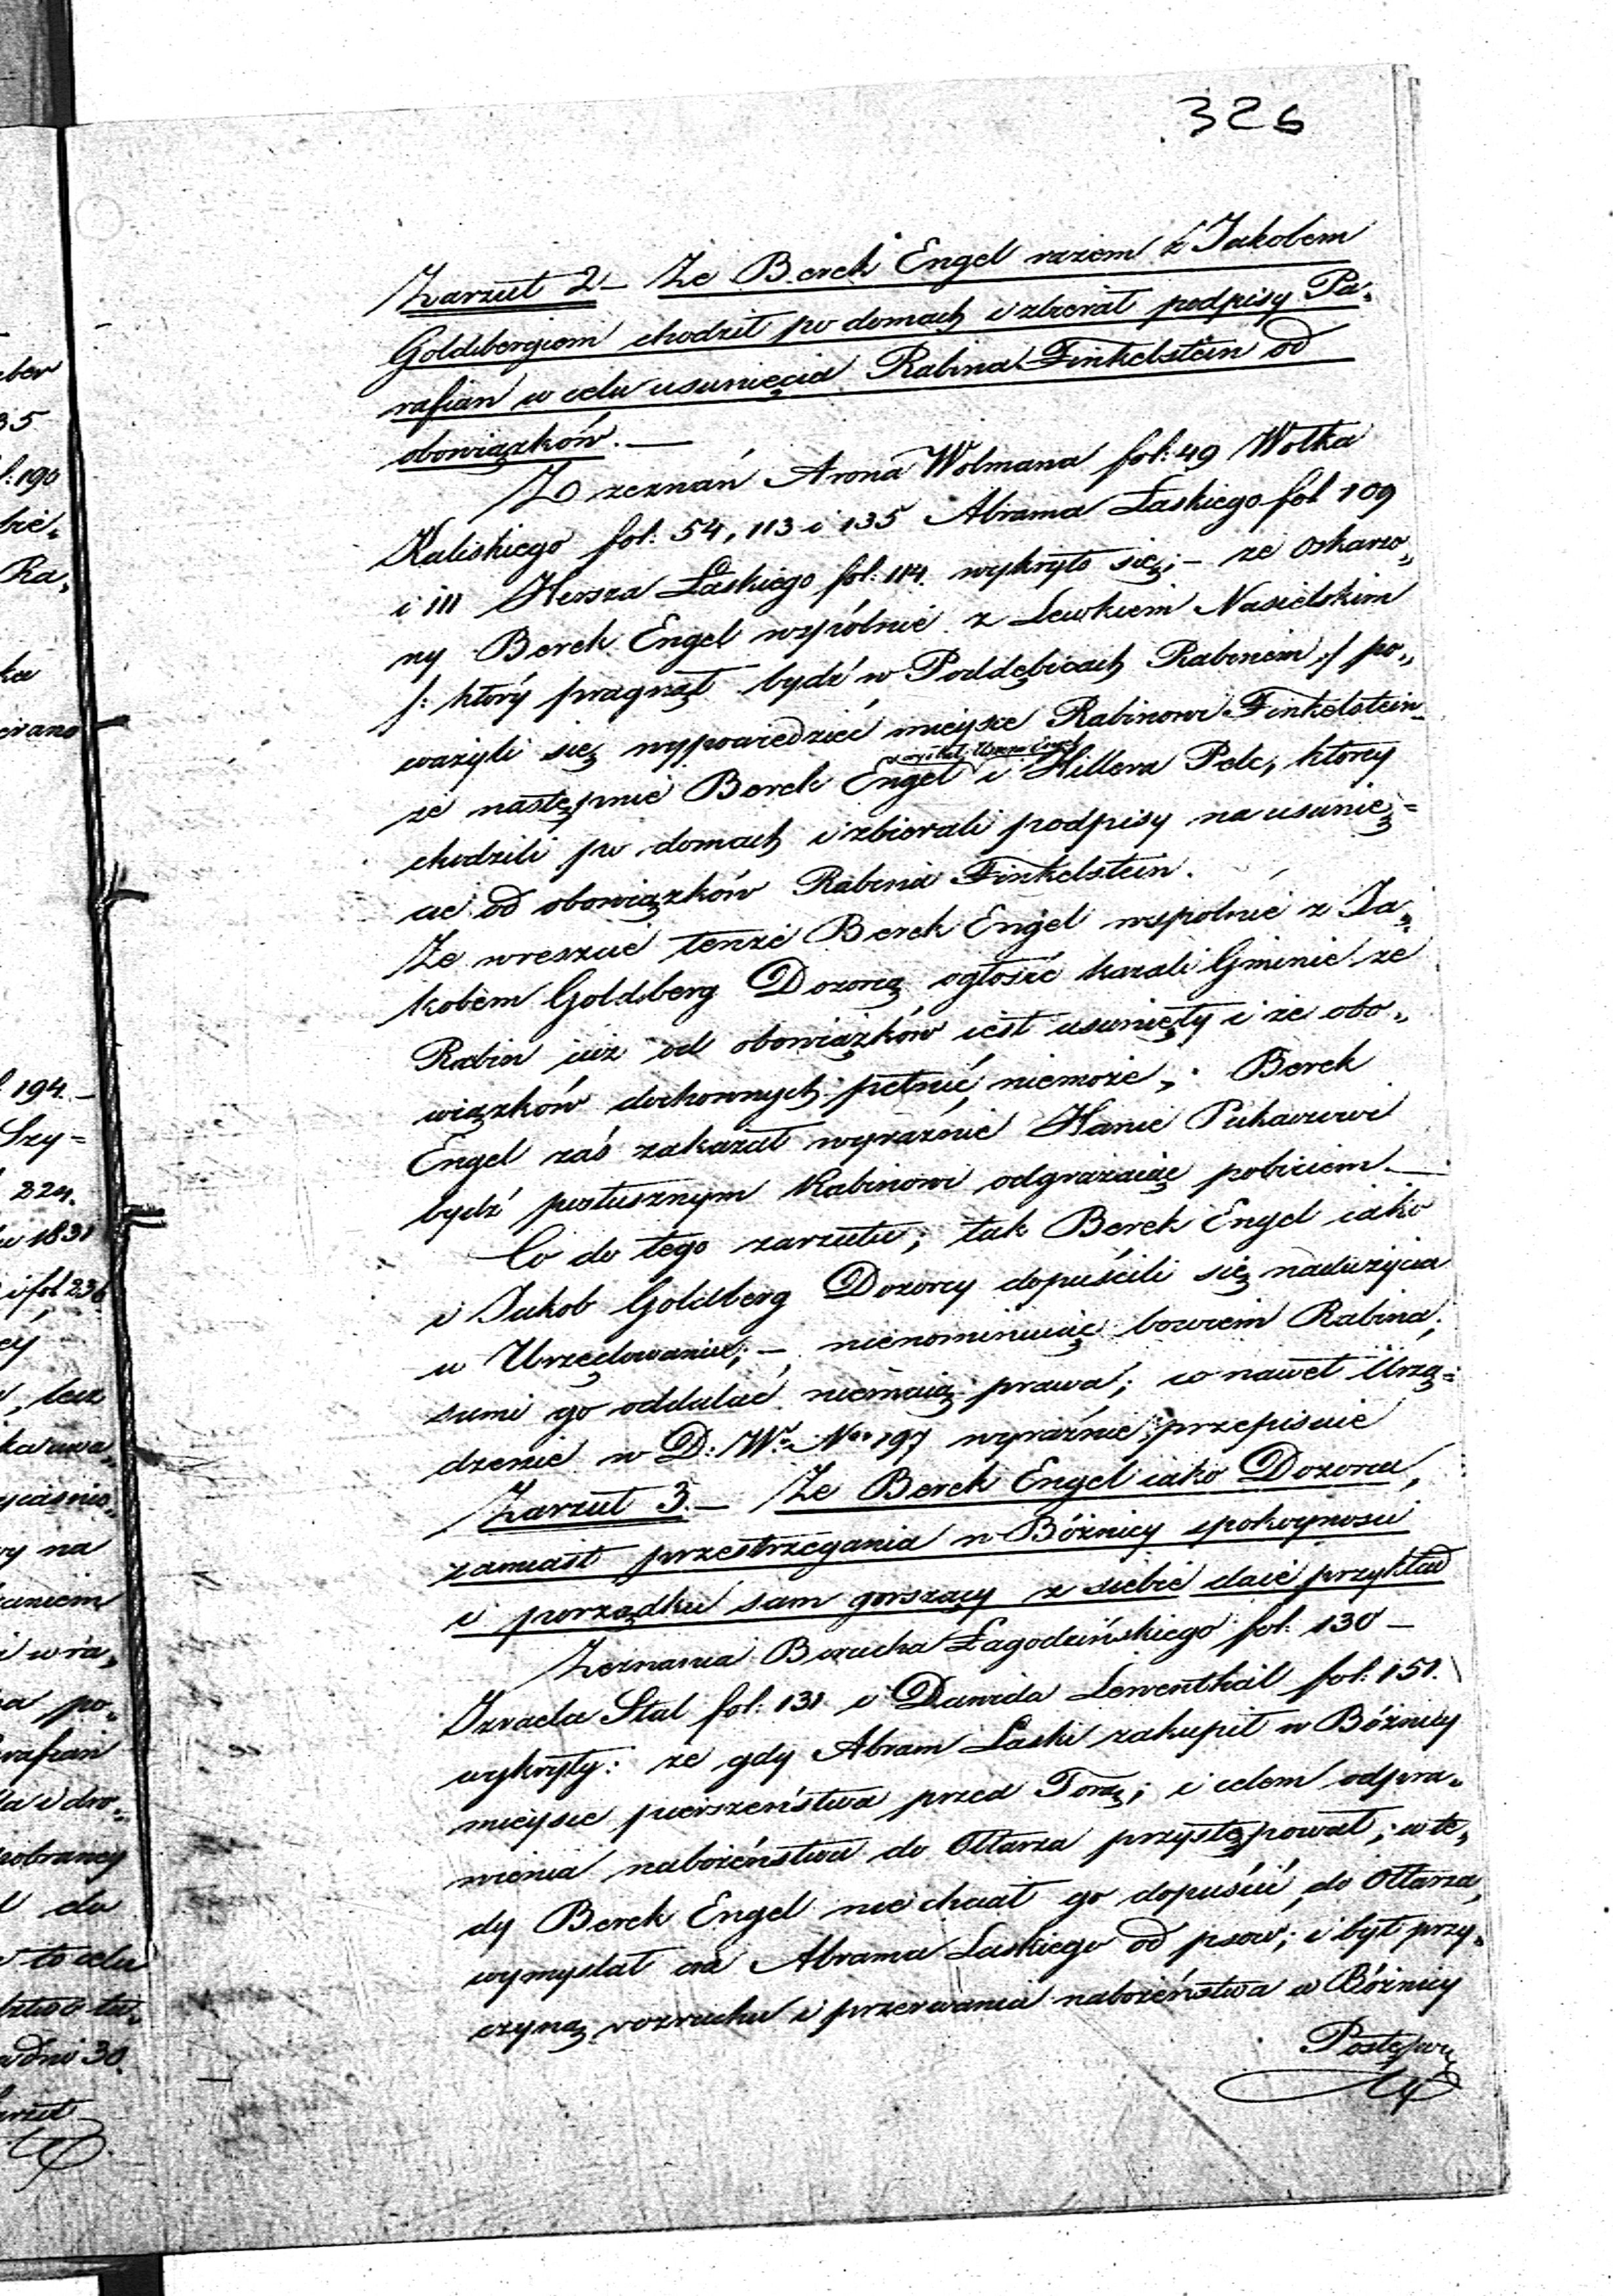 326
Zarzut 2 – Że Berek Engel razem z Jakobem
Goldbergiem chodził po domach i zbierał podpisy Pa„
rafian w celu usunięcia Rabina Finkelstein od
obowiązków. —
Z zeznań Arona Wolmana fol: 49 Wolka
Kaliskiego fol: 54, 113 i 135 Abrama Laskiego fol 109
i 111 Hersza Laskiego fol: 114. wykryło się; – że oskarżo„
ny Berek Engel wspólnie z Lewkiem Nasielskim
/: który pragnął bydź w Poddębicach Rabinem :/ po„
ważyli się wypowiedzieć mieysce Rabinowi Finkelstein
że następnie Berek Engel i Hillera Pelc, którzy
chodzili po domach i zbierali podpisy na usunię=
cie od obowiązków Rabina Finkelstein.
Że wreszcie tenże Berek Engel wspolnie z Ja„
kobem Goldberg Dozorcą ogłosić kazali Gminie że
Rabin iuż od obowiązków iest usunięty i że obo„
wiązków duchownych pełnić niemoże; Berek
Engel zaś zakazał wyraźnie Hanie
bydź posłusznym Rabinowi odgrażaiąc pobiciem. —
Co do tego zarzutu; tak Berek Engel iako
i Jakob Goldberg Dozorcy dopuścili się nadużycia
w Urzędowaniu; – nienominuiąc bowiem Rabina;
sami go oddalać niemaią prawa; co nawet Urzą=
dzenie w D: W: No 197 wyraźnie przepisuie
Zarzut 3. – Że Berek Engel iako Dozorca,
zamiast przestrzegania w Bóżnicy spokoyności
i porządku sam gorszący z siebie daie przykład
Zeznania Borucha Łagodzińskiego fol: 130 –
Izraela Stal fol: 131 i Dawida Lewenthal fol: 151.
wykryły: że gdy Abram Laski zakupił w Bóżnicy
mieysce pierszeństwa przed Torą; i celem odpra„
wienia nabożeństwa do Ołtarza przystępował; wte„
dy Berek Engel nie chciał go dopuścić do Ołtarza,
wymyslał na Abrama Laskiego od psów; i był przy„
czyną rozruchu i przerwania nabożeństwa w Bóżnicy